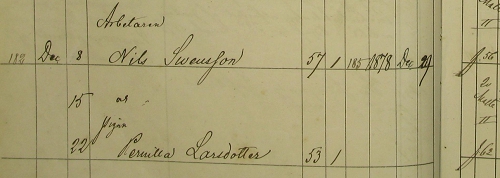 Arbetaren
Dec 8 Nils Swensson 57 1 185 1878 Dec 29 f. 56
15
Pigan
22 Pernilla Larsdotter 53 1 f. 62